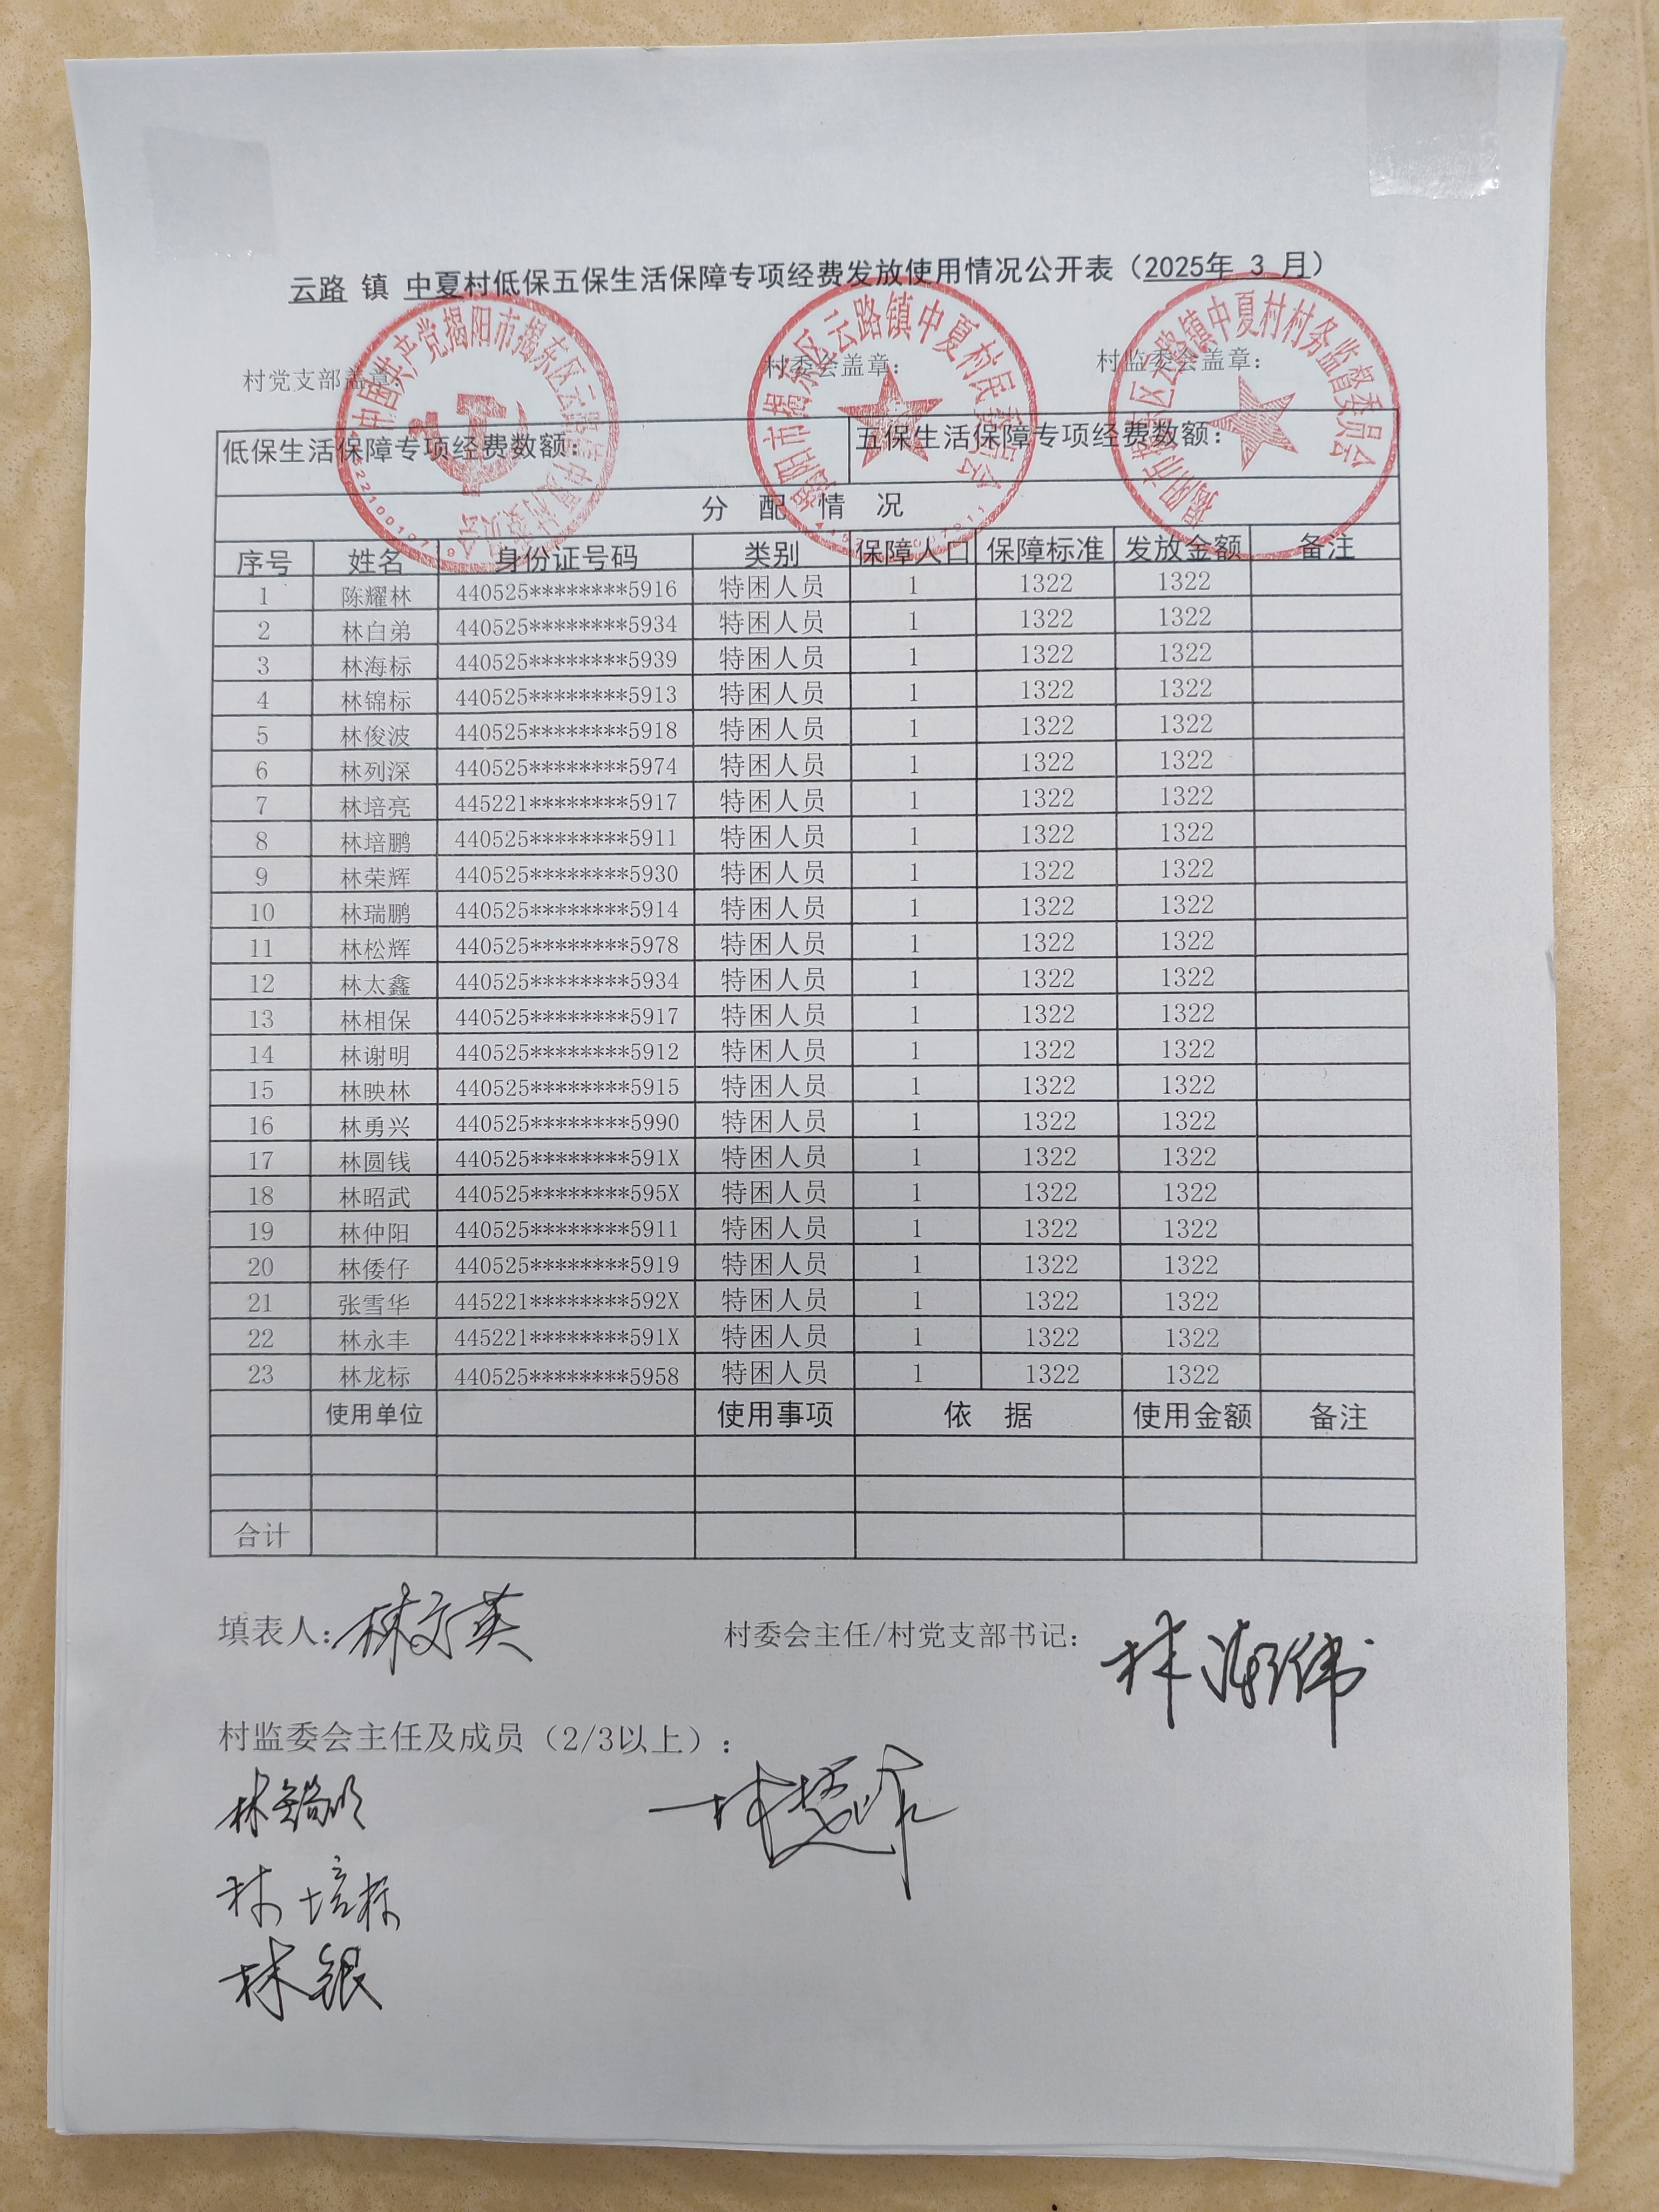 云路 镇 中夏村低保五保生活保障专项经费发放使用情况公开表（2025年 3 月）
村党支部盖章： 村委会盖章： 村监委会盖章：
低保生活保障专项经费数额： 五保生活保障专项经费数额：
分 配 情 况
序号 姓名 身份证号码 类别 保障人口 保障标准 发放金额 备注
1 陈耀林 440525********5916 特困人员 1 1322 1322
2 林白弟 440525********5934 特困人员 1 1322 1322
3 林海标 440525********5939 特困人员 1 1322 1322
4 林锦标 440525********5913 特困人员 1 1322 1322
5 林俊波 440525********5918 特困人员 1 1322 1322
6 林列深 440525********5974 特困人员 1 1322 1322
7 林培亮 445221********5917 特困人员 1 1322 1322
8 林培鹏 440525********5911 特困人员 1 1322 1322
9 林荣辉 440525********5930 特困人员 1 1322 1322
10 林瑞鹏 440525********5914 特困人员 1 1322 1322
11 林松辉 440525********5978 特困人员 1 1322 1322
12 林太鑫 440525********5934 特困人员 1 1322 1322
13 林相保 440525********5917 特困人员 1 1322 1322
14 林谢明 440525********5912 特困人员 1 1322 1322
15 林映林 440525********5915 特困人员 1 1322 1322
16 林勇兴 440525********5990 特困人员 1 1322 1322
17 林圆钱 440525********591X 特困人员 1 1322 1322
18 林昭武 440525********595X 特困人员 1 1322 1322
19 林仲阳 440525********5911 特困人员 1 1322 1322
20 林倭仔 440525********5919 特困人员 1 1322 1322
21 张雪华 445221********592X 特困人员 1 1322 1322
22 林永丰 445221********591X 特困人员 1 1322 1322
23 林龙标 440525********5958 特困人员 1 1322 1322
使用单位 使用事项 依 据 使用金额 备注
合计
填表人：林文英 村委会主任/村党支部书记：林
村监委会主任及成员（2/3以上）：
林
林培标
林银